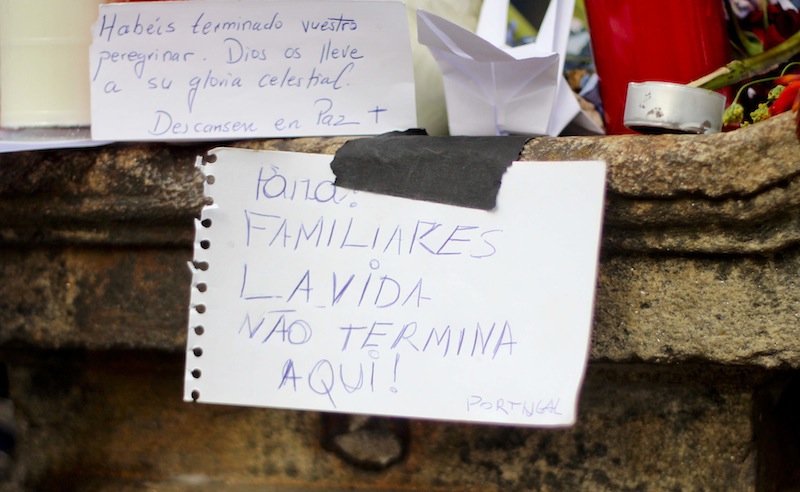 Habéis terminado vuestro
peregrinar. Dios os lleve
a su gloria celestial.
Descansen en Paz +
Para:
FAMILIARES
LA VIDA
NÃO TERMINA
AQUI!
PORTUGAL